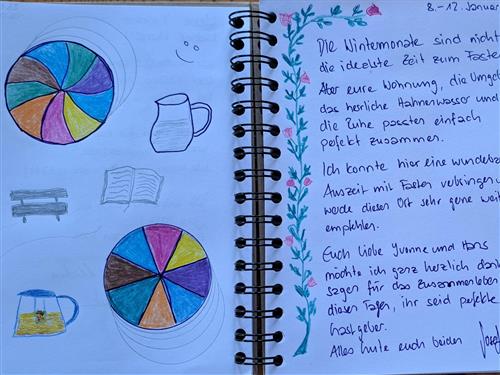 8.-12. Januar
Die Wintermonate sind nicht
die idealste Zeit zum Fasten.
Aber eure Wohnung, die Umge
das herrliche Hahnenwasser und
die Ruhe passten einfach
perfekt zusammen.
Ich konnte hier eine wunderba
Auszeit mit Fasten verbringen u
werde diesen Ort sehr gerne weit
empfehlen.
Euch liebe Yvonne und Hans
möchte ich ganz herzlich dank
sagen für das Zusammenleben
diesen Tagen, ihr seid perfekte
Gastgeber.
Alles Gute euch beiden